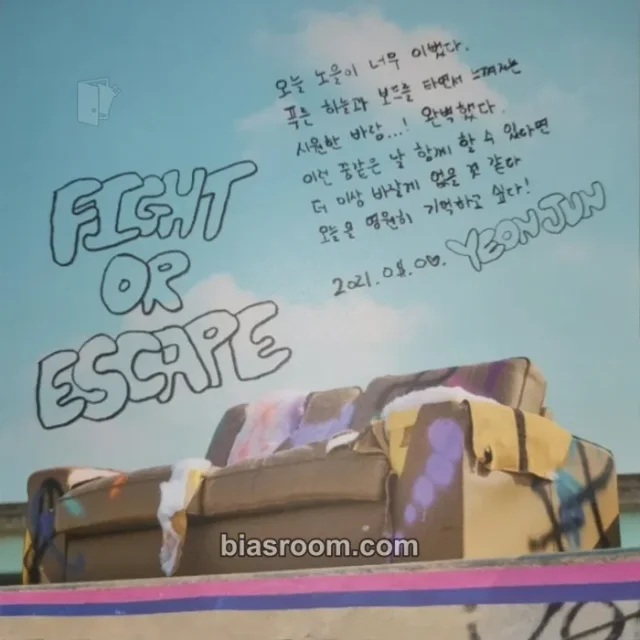 오늘 노을이 너무 이뻤다.
푸른 하늘과 보드를 타면서 느껴지는
시원한 바람...! 완벽했다.
이런 꿈같은 날 함께 할 수 있다면
더 이상 바랄게 없을 것 같다
오늘을 영원히 기억하고 싶다!
2021.08.
YEONJUN
FIGHT
OR
ESCAPE
biasroom.com